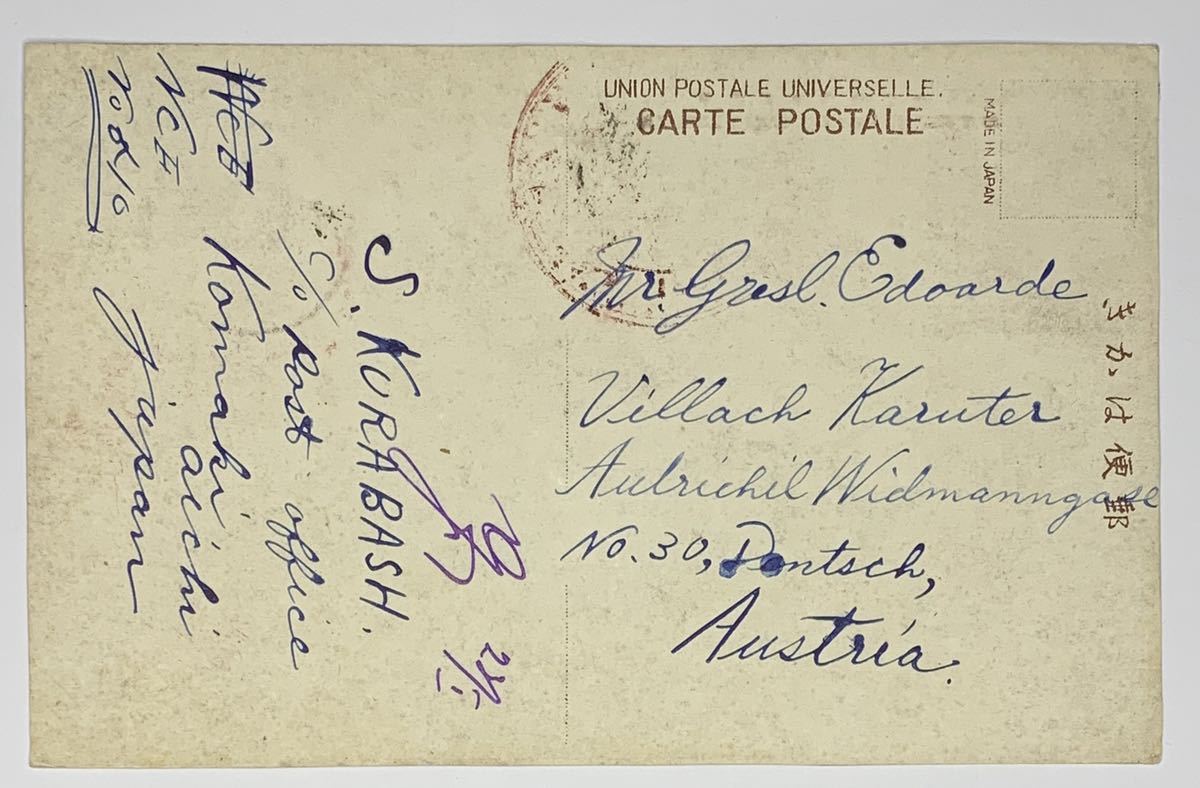 UNION POSTALE UNIVERSELLE.
CARTE POSTALE
MADE IN JAPAN
きかは便郵
Mr. Gresl. Edoarde
Villach Karuter
Aulrichil Widmanngase
No. 30, Dontsch,
Austria.
S. KURABASH.
C/o Post office
Komaki aichi
Jiapan